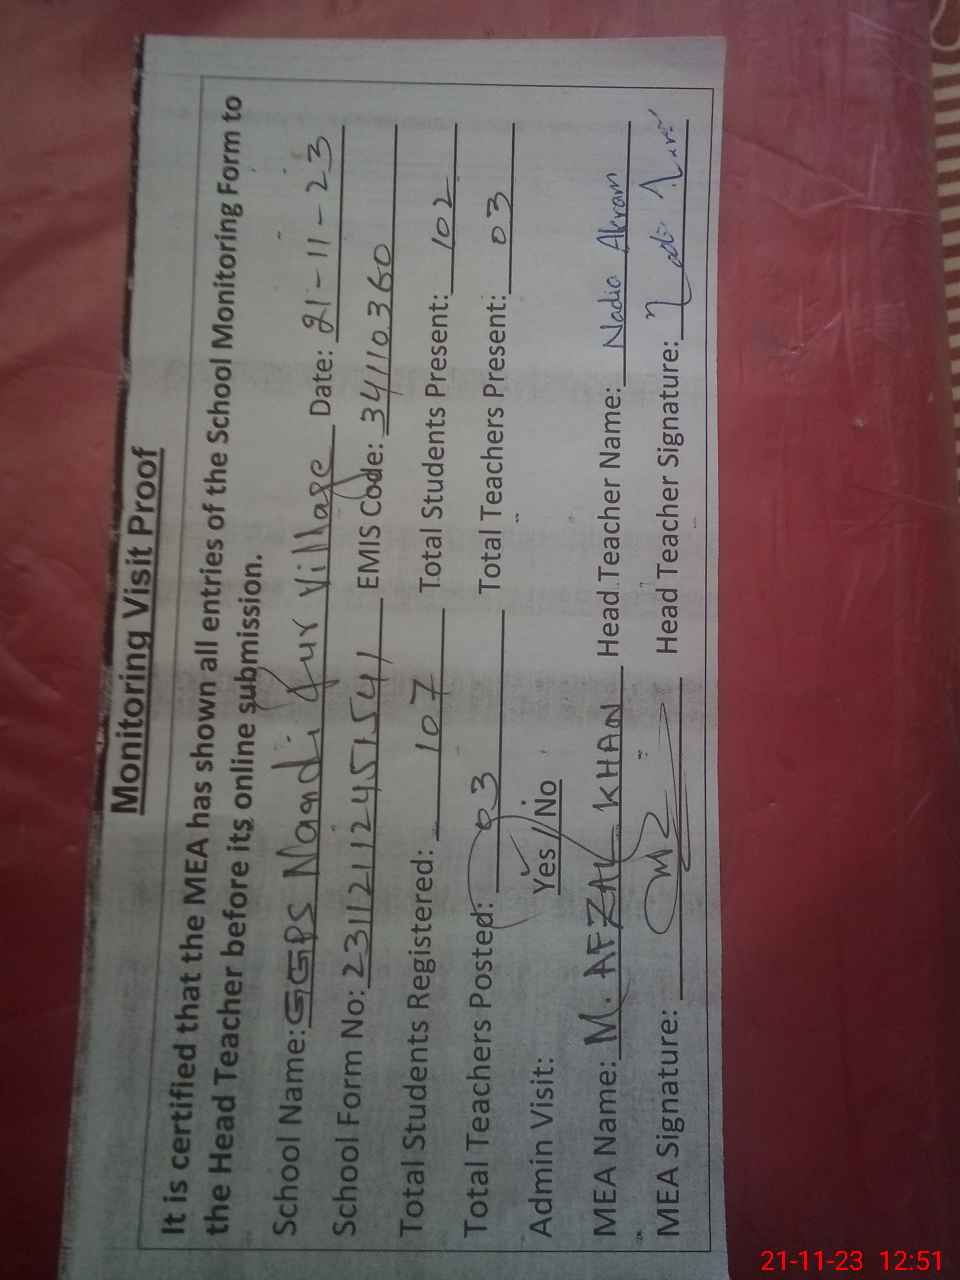 Monitoring Visit Proof
It is certified that the MEA has shown all entries of the School Monitoring Form to
the Head Teacher before its online submission.
School Name: GGPS Nandi Village Date: 21-11-23
School Form No: 231121124515541 EMIS Code: 34110360
Total Students Registered: 107 Total Students Present: 102
Total Teachers Posted: 03 Total Teachers Present: 03
Admin Visit: Yes / No
MEA Name: M. AFZAL KHAN Head Teacher Name: Nadia Akram
MEA Signature: Head Teacher Signature:
21-11-23 12:51